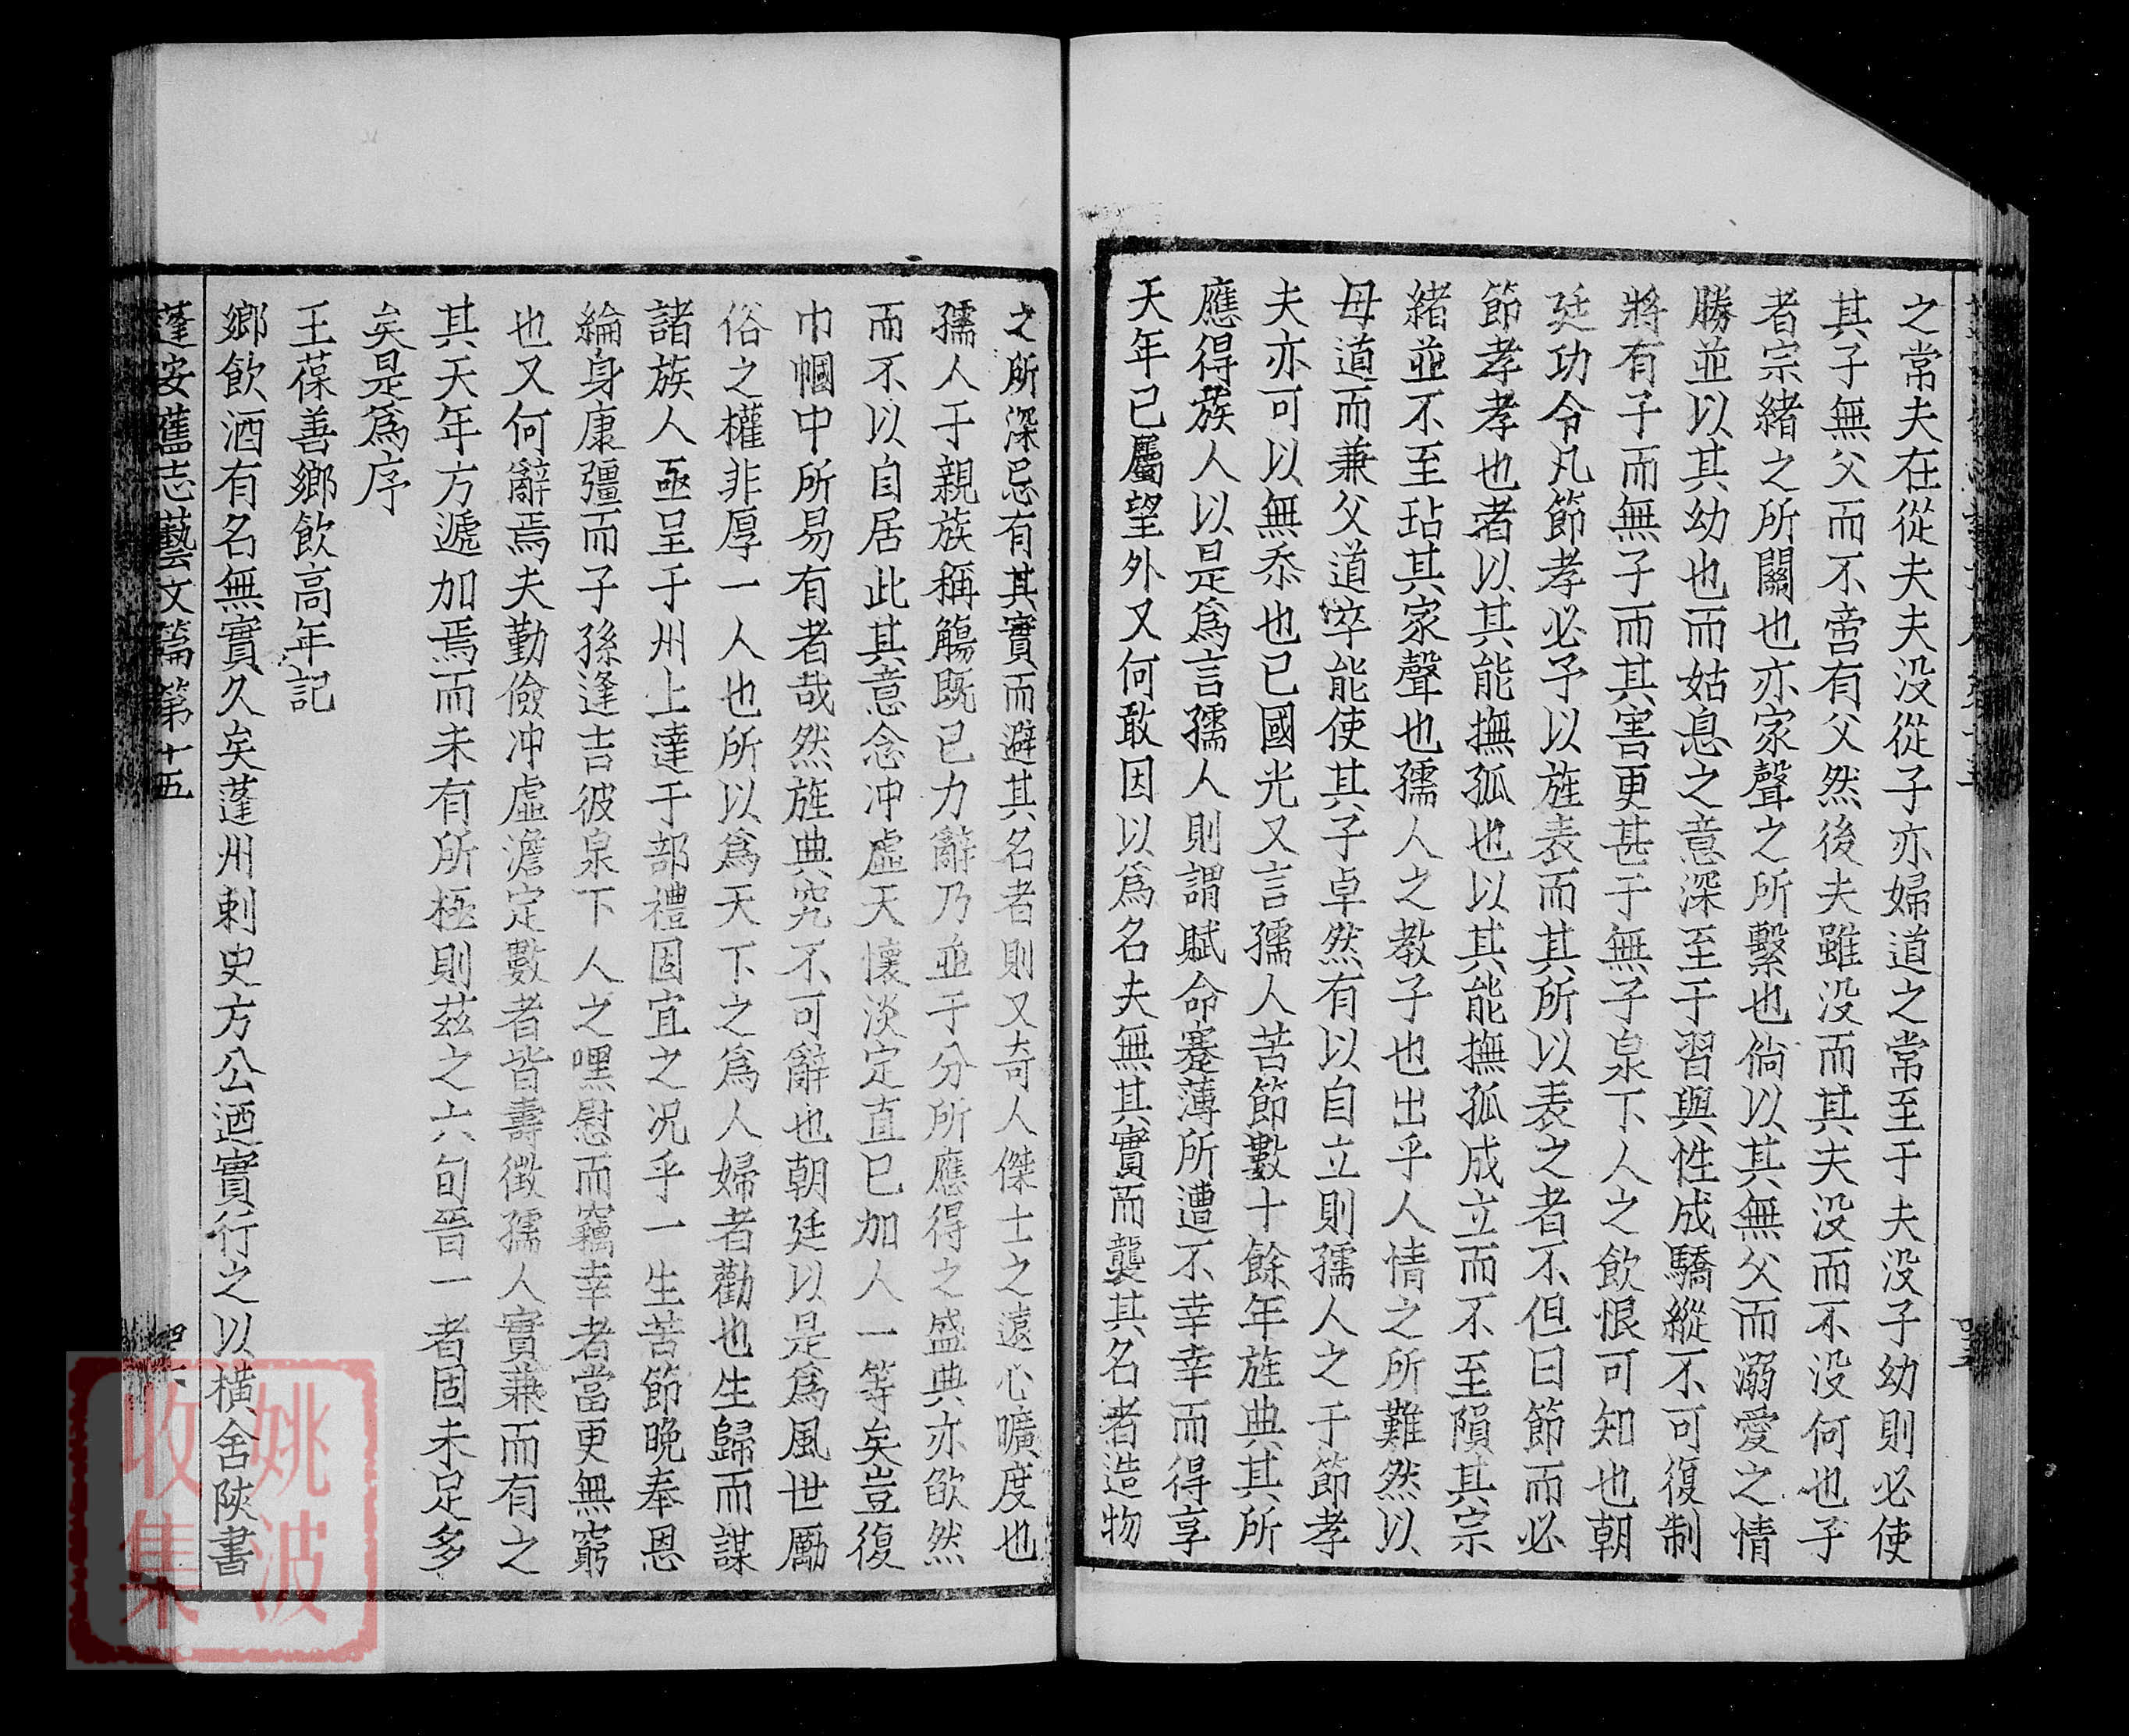 之常夫在從夫夫没從子亦婦道之常至于夫没子幼則必使
其子無父而不啻有父然後夫雖没而其夫没而不没何也子
者宗緒之所關也亦家聲之所繫也倘以其無父而溺愛之情
勝並以其幼也而姑息之意深至于習與性成驕縱不可復制
將有子而無子而其害更甚于無子泉下人之飲恨可知也朝
廷功令凡節孝必予以旌表而其所以表之者不但曰節而必
節孝孝也者以其能撫孤也以其能撫孤成立而不至隕其宗
緒並不至玷其家聲也孺人之教子也出乎人情之所難然以
母道而兼父道卒能使其子卓然有以自立則孺人之于節孝
夫亦可以無忝也已國光又言孺人苦節數十餘年旌典其所
應得族人以是爲言孺人則謂賦命蹇薄所遭不幸幸而得享
天年已屬望外又何敢因以爲名夫無其實而襲其名者造物
之所深忌有其實而避其名者則又奇人傑士之遠心曠度也
孺人于親族稱觴既已力辭乃並于分所應得之盛典亦欿然
而不以自居此其意念冲虛天懷淡定直已加人一等矣豈復
巾幗中所易有者哉然旌典究不可辭也朝廷以是爲風世勵
俗之權非厚一人也所以爲天下之爲人婦者勸也生歸而謀
諸族人亟呈于州上達于部禮固宜之况乎一生苦節晚奉恩
綸身康彊而子孫逢吉彼泉下人之嘿慰而竊幸者當更無窮
也又何辭焉夫勤儉冲虛澹定數者皆壽徵孺人實兼而有之
其天年方遞加焉而未有所極則茲之六旬晉一者固未足多
矣是爲序
王葆善鄉飲高年記
鄉飲酒有名無實久矣蓬州刺史方公迺實行之以横舍陝書
蓬安舊志藝文篇第十五
姚波
收集